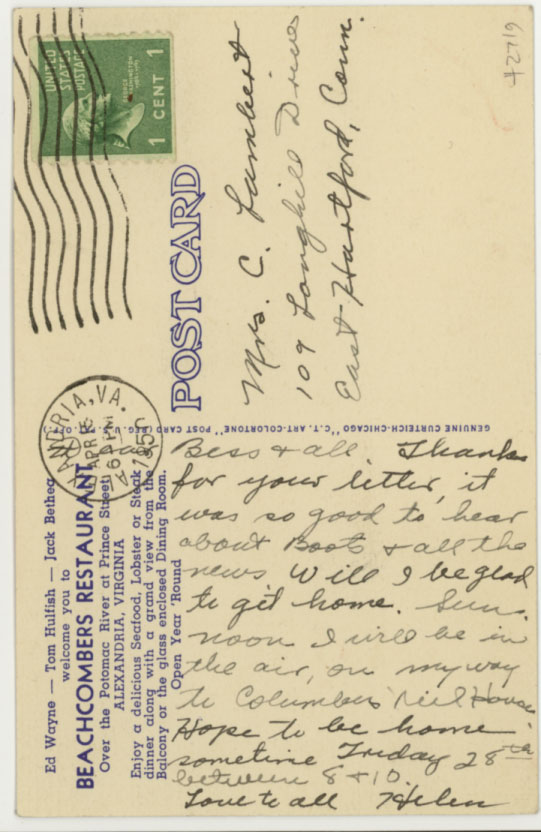 Ed Wayne — Tom Hulfish — Jack Bethea
welcome you to
BEACHCOMBERS RESTAURANT
Over the Potomac River at Prince Street
ALEXANDRIA, VIRGINIA
Enjoy a delicious Seafood, Lobster or Steak
dinner along with a grand view from the
Balcony or the glass enclosed Dining Room.
Open Year 'Round
Bess & all. Thanks
for your letter, it
was so good to hear
about Boots & all the
news. Will I be glad
to get home. Sun.
noon I will be in
the air, on my way
to Columbus Neil House.
Hope to be home
sometime Friday 28th
between 8 & 10.
Love to all Helen
GENUINE CURTEICH-CHICAGO "C.T. ART-COLORTONE" POST CARD (REG. U.S. PAT. OFF.)
POST CARD
UNITED
STATES
POSTAGE
1 CENT 1
ANDRIA, VA.
APR
PM
1950
Mrs. C. Lambert
109 Langhill Drive
East Hartford, Conn.
#2719